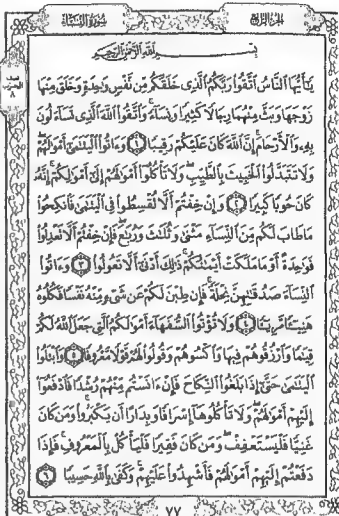 الجزء الرابع
سورة النساء
بسم الله الرحمن الرحيم
يَٰٓأَيُّهَا ٱلنَّاسُ ٱتَّقُوا۟ رَبَّكُمُ ٱلَّذِى خَلَقَكُم مِّن نَّفْسٍ وَٰحِدَةٍ وَخَلَقَ مِنْهَا
زَوْجَهَا وَبَثَّ مِنْهُمَا رِجَالًا كَثِيرًا وَنِسَآءً ۚ وَٱتَّقُوا۟ ٱللَّهَ ٱلَّذِى تَسَآءَلُونَ
بِهِۦ وَٱلْأَرْحَامَ ۚ إِنَّ ٱللَّهَ كَانَ عَلَيْكُمْ رَقِيبًا ١ وَءَاتُوا۟ ٱلْيَتَٰمَىٰٓ أَمْوَٰلَهُمْ ۖ
وَلَا تَتَبَدَّلُوا۟ ٱلْخَبِيثَ بِٱلطَّيِّبِ ۖ وَلَا تَأْكُلُوٓا۟ أَمْوَٰلَهُمْ إِلَىٰٓ أَمْوَٰلِكُمْ ۚ إِنَّهُۥ
كَانَ حُوبًا كَبِيرًا ٢ وَإِنْ خِفْتُمْ أَلَّا تُقْسِطُوا۟ فِى ٱلْيَتَٰمَىٰ فَٱنكِحُوا۟
مَا طَابَ لَكُم مِّنَ ٱلنِّسَآءِ مَثْنَىٰ وَثُلَٰثَ وَرُبَٰعَ ۖ فَإِنْ خِفْتُمْ أَلَّا تَعْدِلُوا۟
فَوَٰحِدَةً أَوْ مَا مَلَكَتْ أَيْمَٰنُكُمْ ۚ ذَٰلِكَ أَدْنَىٰٓ أَلَّا تَعُولُوا۟ ٣ وَءَاتُوا۟
ٱلنِّسَآءَ صَدُقَٰتِهِنَّ نِحْلَةً ۚ فَإِن طِبْنَ لَكُمْ عَن شَىْءٍ مِّنْهُ نَفْسًا فَكُلُوهُ
هَنِيٓـًٔا مَّرِيٓـًٔا ٤ وَلَا تُؤْتُوا۟ ٱلسُّفَهَآءَ أَمْوَٰلَكُمُ ٱلَّتِى جَعَلَ ٱللَّهُ لَكُمْ
قِيَٰمًا وَٱرْزُقُوهُمْ فِيهَا وَٱكْسُوهُمْ وَقُولُوا۟ لَهُمْ قَوْلًا مَّعْرُوفًا ٥ وَٱبْتَلُوا۟
ٱلْيَتَٰمَىٰ حَتَّىٰٓ إِذَا بَلَغُوا۟ ٱلنِّكَاحَ فَإِنْ ءَانَسْتُم مِّنْهُمْ رُشْدًا فَٱدْفَعُوٓا۟
إِلَيْهِمْ أَمْوَٰلَهُمْ ۖ وَلَا تَأْكُلُوهَآ إِسْرَافًا وَبِدَارًا أَن يَكْبَرُوا۟ ۚ وَمَن كَانَ
غَنِيًّا فَلْيَسْتَعْفِفْ ۖ وَمَن كَانَ فَقِيرًا فَلْيَأْكُلْ بِٱلْمَعْرُوفِ ۚ فَإِذَا
دَفَعْتُمْ إِلَيْهِمْ أَمْوَٰلَهُمْ فَأَشْهِدُوا۟ عَلَيْهِمْ ۚ وَكَفَىٰ بِٱللَّهِ حَسِيبًا ٦
٧٧